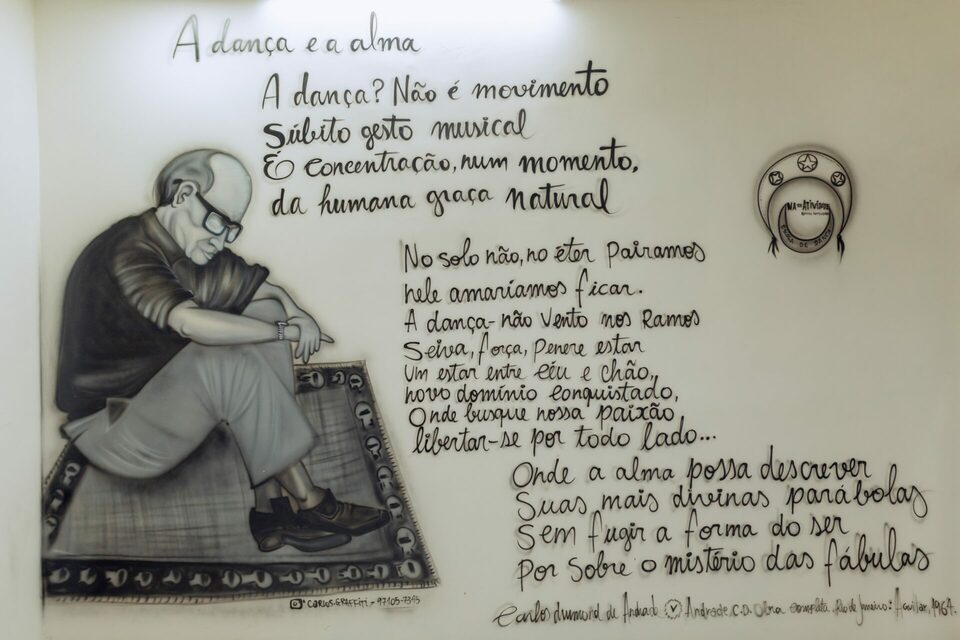 A dança e a alma
A dança? Não é movimento
Súbito gesto musical
É concentração, num momento,
da humana graça natural
No solo não, no éter pairamos
nele amaríamos ficar.
A dança - não vento nos Ramos
Seiva, força, perene estar
Um estar entre céu e chão,
novo domínio conquistado,
Onde busque nossa paixão
libertar-se por todo lado...
Onde a alma possa descrever
Suas mais divinas parábolas
Sem fugir a forma do ser
Por sobre o mistério das fábulas
Carlos drumond de Andrade Andrade, C.D. Obra completa. Rio de Janeiro: Aguilar, 1964.
CARLOS.GRAFFITI - 97105-7345
NA ATIVIDADE